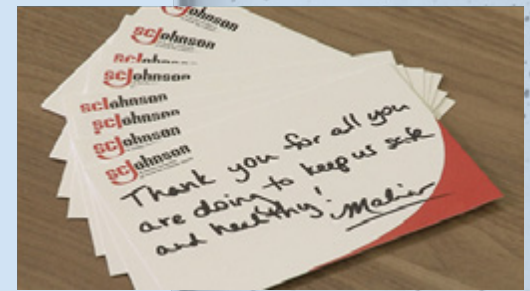 Johnson
scJohnson
scJohnson
scJohnson
scJohnson
scJohnson
scJohnson
scJohnson
Thank you for all you
are doing to keep us safe
and healthy!